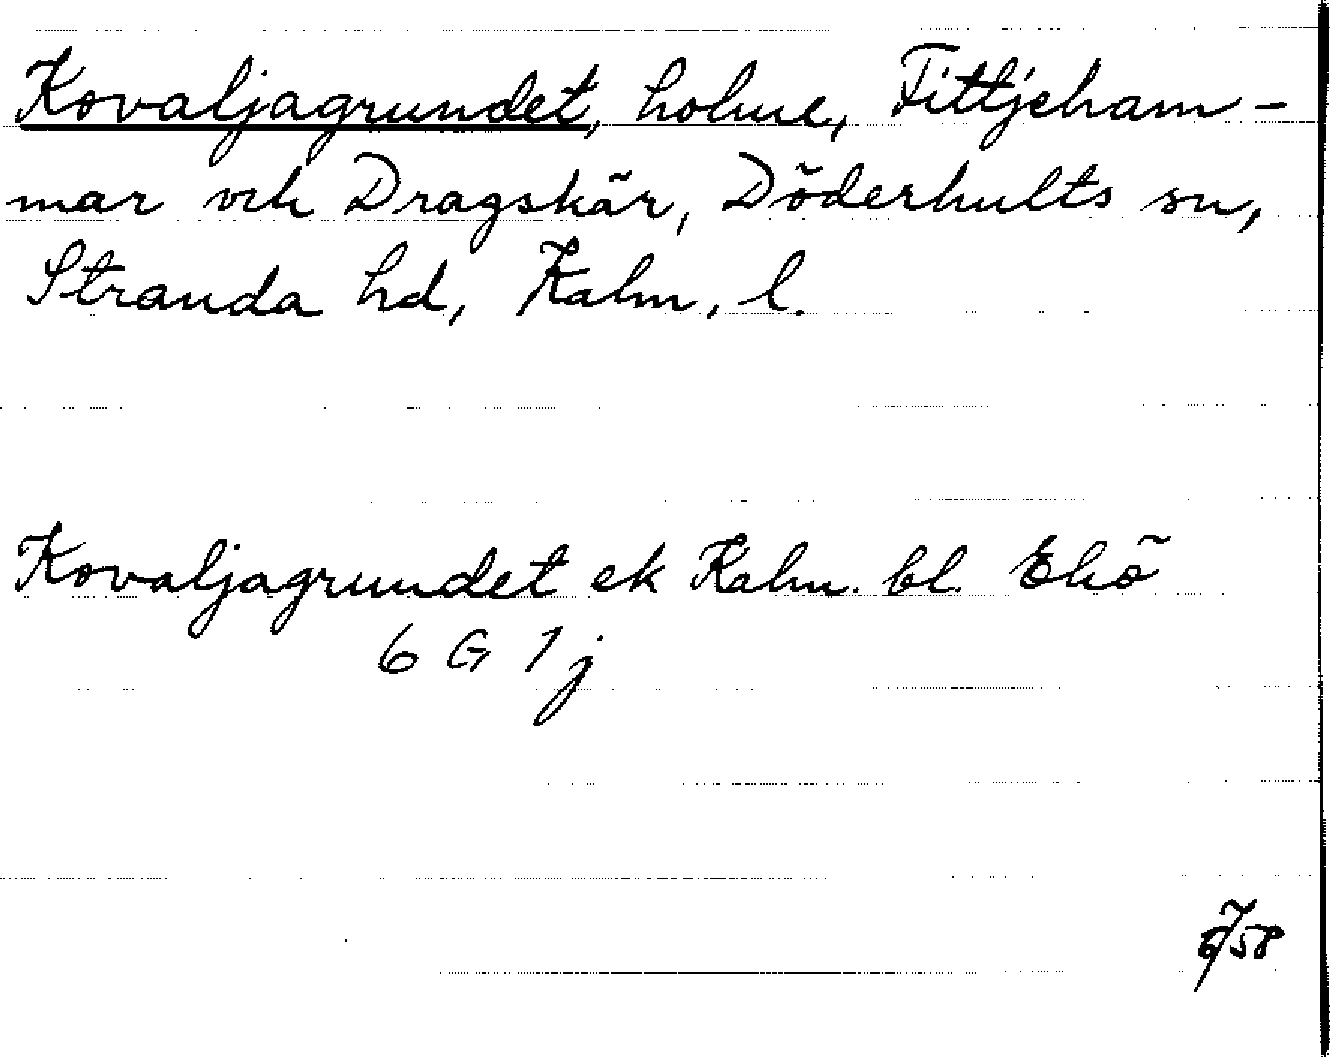 Kovaljagrundet, holme, Fittjeham-
mar och Dragskär, Döderhults sn,
Stranda hd, Kalm. l.
Kovaljagrundet ek Kalm. bl. Ekö
6 G 1 j